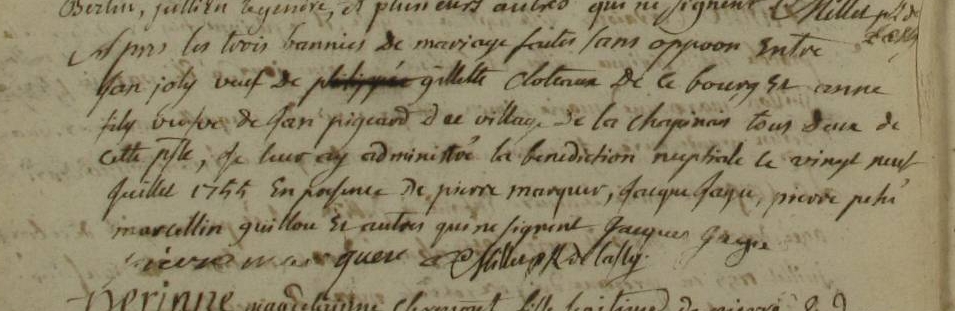 Berlin, jullien legendre, et plusieurs autres qui ne signent Millet
Apres les trois bannies de mariage faites sans oppoon Entre
Jan joly veuf de philippée gillette cloteaux de ce bourg Et anne
fily veufve de Jan pigeard de village de la chapinais tous deux de
cette psse, Je leur ay administré la benediction nuptiale le vingt neuf
Juillet 1755 En presence de pierre marquer, Jacque Jaqu, pierre peti
marcellin guillou Et autres qui ne signent Jacques
pierre marquere Millet
Perinne magdelainne fille legitime de pierre